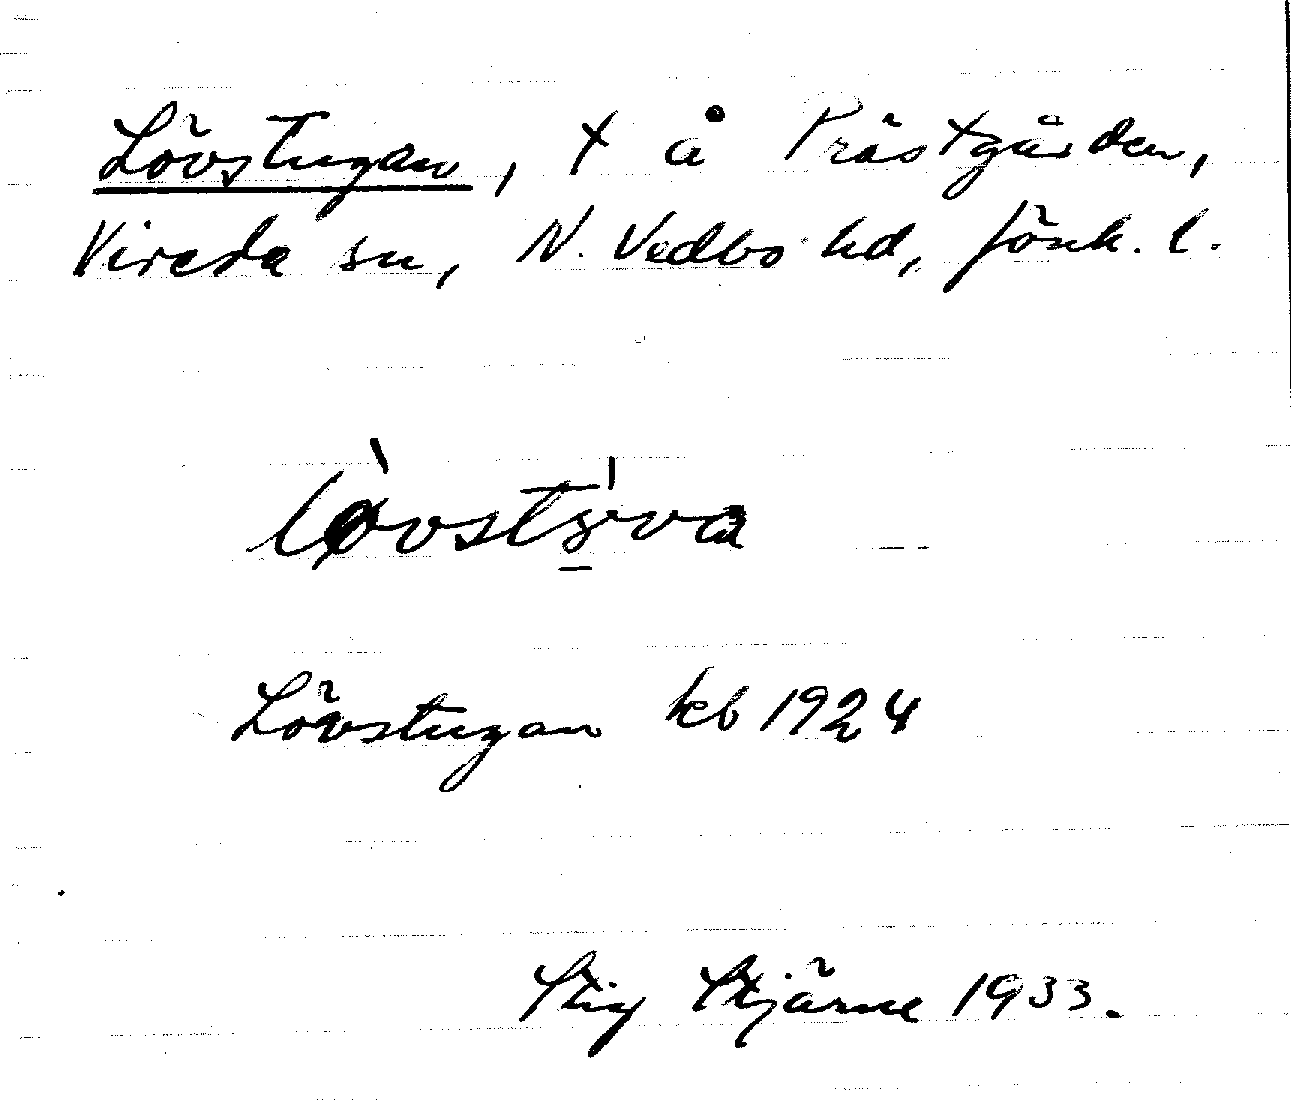 Lövstugan, t å Prästgården,
Vireda sn, N. Vedbo hd, Jönk. l.
Lövstugan kb 1924
Stig Stjärne 1933.